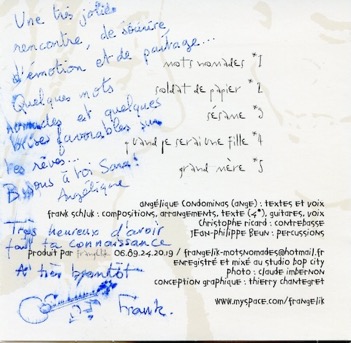 Une très jolie
rencontre, de sourire
d'émotion et de partage...
Quelques mots
nomades et quelques
brises favorables sur
tes rêves...
Bisous à toi Sara!
Angélique
Très heureux d'avoir
fait ta connaissance
A très bientôt
Frank.
mots nomades *1
soldat de papier *2
sésame *3
quand je serai une fille *4
grand mère *5
angélique Condominas (ange) : textes et voix
frank schluk : compositions, arrangements, texte (4*), guitares, voix
Christophe ricard : contrebasse
Jean-philippe Beun : percussions
produit par frangélik 06.69.24.20.19 / frangelik-motsnomades@hotmail.fr
enregistré et mixé au studio bop city
photo : claude imbernon
conception graphique : thierry chantegret
www.myspace.com/frangelik